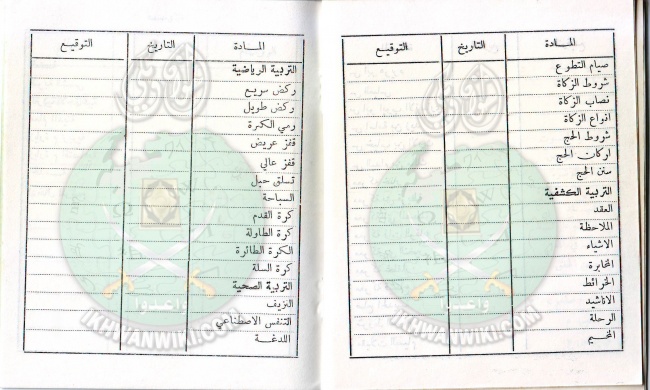 المادة التاريخ التوقيع
صيام التطوع
شروط الزكاة
نصاب الزكاة
انواع الزكاة
شروط الحج
اركان الحج
سنن الحج
التربية الكشفية
العقد
الملاحظة
الاشياء
المخابرة
الخرائط
الاناشيد
الرحلة
المخيم
المادة التاريخ التوقيع
التربية الرياضية
ركض سريع
ركض طويل
رمي الكرة
قفز عريض
قفز عالي
تسلق حبل
السباحة
كرة القدم
كرة الطاولة
الكرة الطائرة
كرة السلة
التربية الصحية
النزيف
التنفس الاصطناعي
اللدغة
واعدوا
IKHWANWIKI.COM
واعدوا
IKHWANWIKI.COM